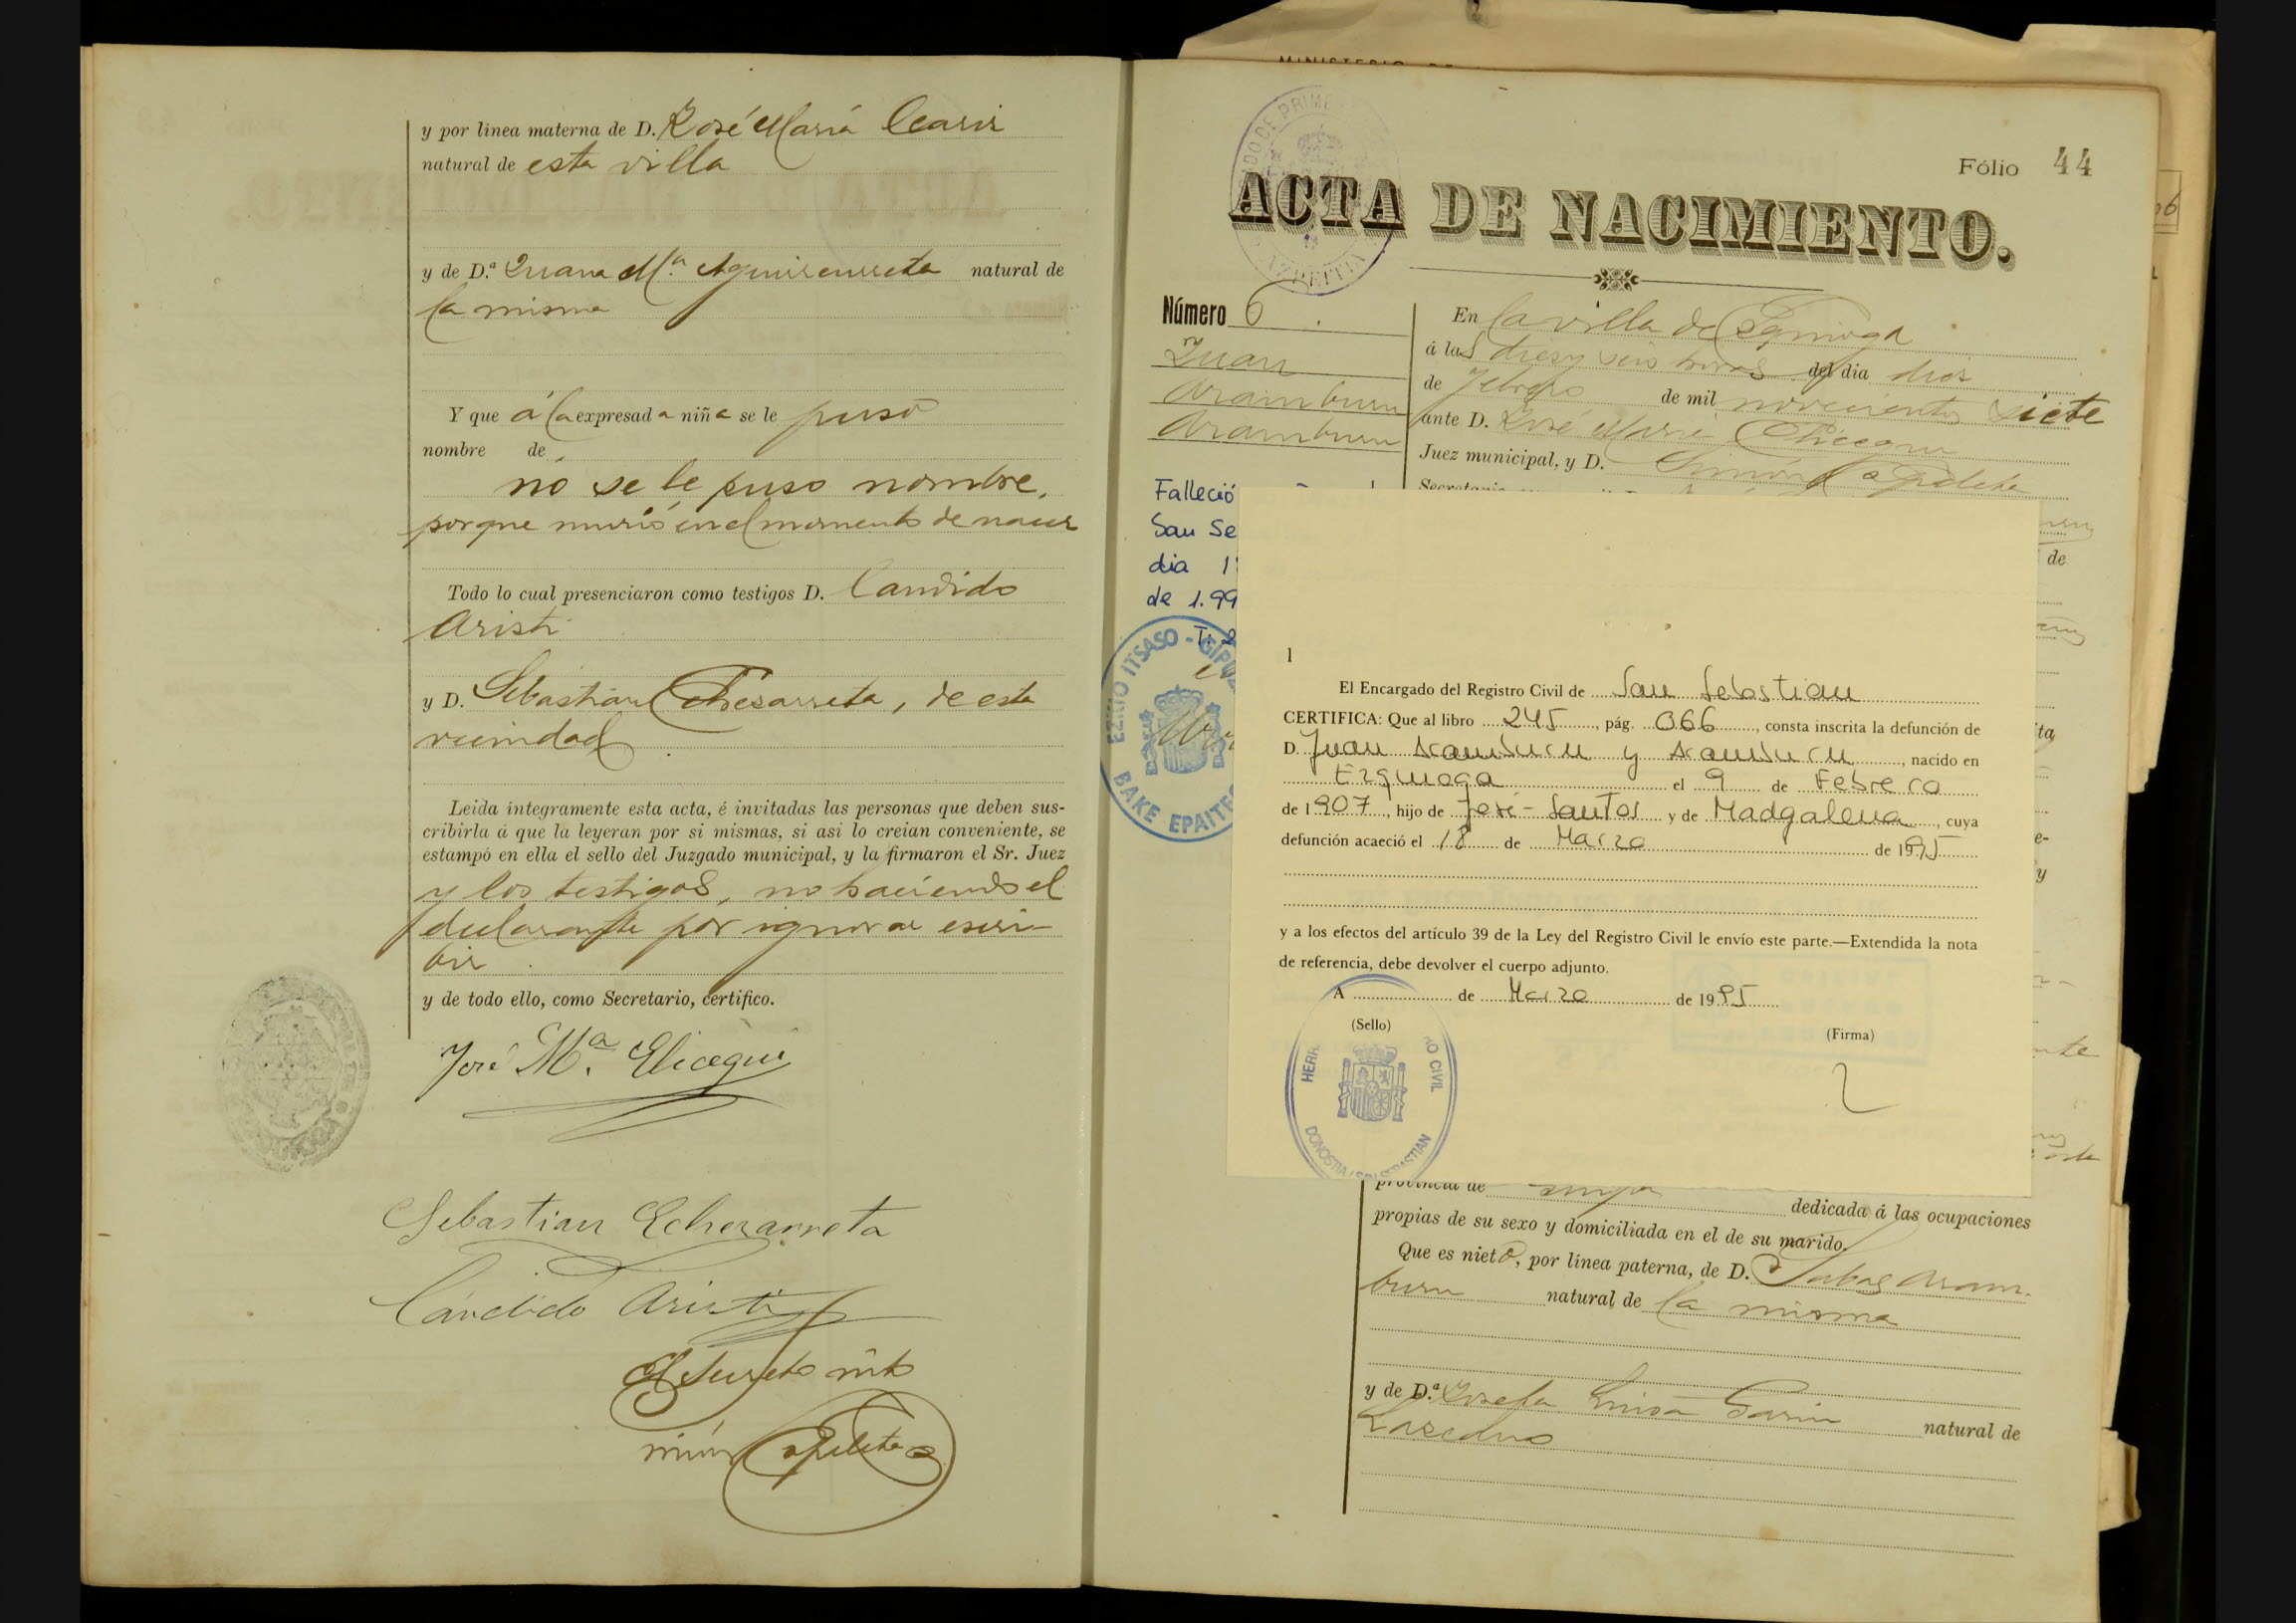 y por línea materna de D. José María
natural de esta villa
y de D.ª Juana M.ª Aguirreurreta natural de
la misma
Y que á la expresada niña se le puso
nombre de
no se le puso nombre,
porque murió en el momento de nacer
Todo lo cual presenciaron como testigos D. Candido
Aristi
y D. Sebastian Echezarreta, de esta
vecindad
Leida integramente esta acta, é invitadas las personas que deben sus-
cribirla á que la leyeran por si mismas, si asi lo creian conveniente, se
estampó en ella el sello del Juzgado municipal, y la firmaron el Sr. Juez
y los testigos, no haciendo el
declarante por ignorar escri-
bir.
y de todo ello, como Secretario, certifico.
José M.ª Elicegui
Sebastian Echezarreta
Cándido Aristi
El Secreto
MINISTERIO DE
Fólio 44
ACTA DE NACIMIENTO.
AZPEITIA
Número 6
Juan
Aramburu
Aramburu
Falleció
San Se
dia 1
de 1.99
ITSASO - GIPUZ
BAKE EPAITEG
En la villa de Ezquioga
á las diez y seis horas del dia diez
de Febrero de mil novecientos siete
ante D. José Maria Elicegui
Juez municipal, y D.
de
1
El Encargado del Registro Civil de San Sebastian
CERTIFICA: Que al libro 245, pág. 066, consta inscrita la defunción de
D. Juan Aramburu y Aramburu, nacido en
Ezquioga el 9 de Febrero
de 1907, hijo de José-Santos y de Madgalena, cuya
defunción acaeció el 18 de Marzo de 1995
y a los efectos del artículo 39 de la Ley del Registro Civil le envío este parte.—Extendida la nota
de referencia, debe devolver el cuerpo adjunto.
A de Marzo de 1995
(Sello)
(Firma)
DONOSTIA / SAN SEBASTIAN
provincia de dedicada á las ocupaciones
propias de su sexo y domiciliada en el de su marido.
Que es nieto, por línea paterna, de D. Sabas Aram-
buru natural de la misma
y de D.ª Josefa Luisa Garin natural de
Lazcano